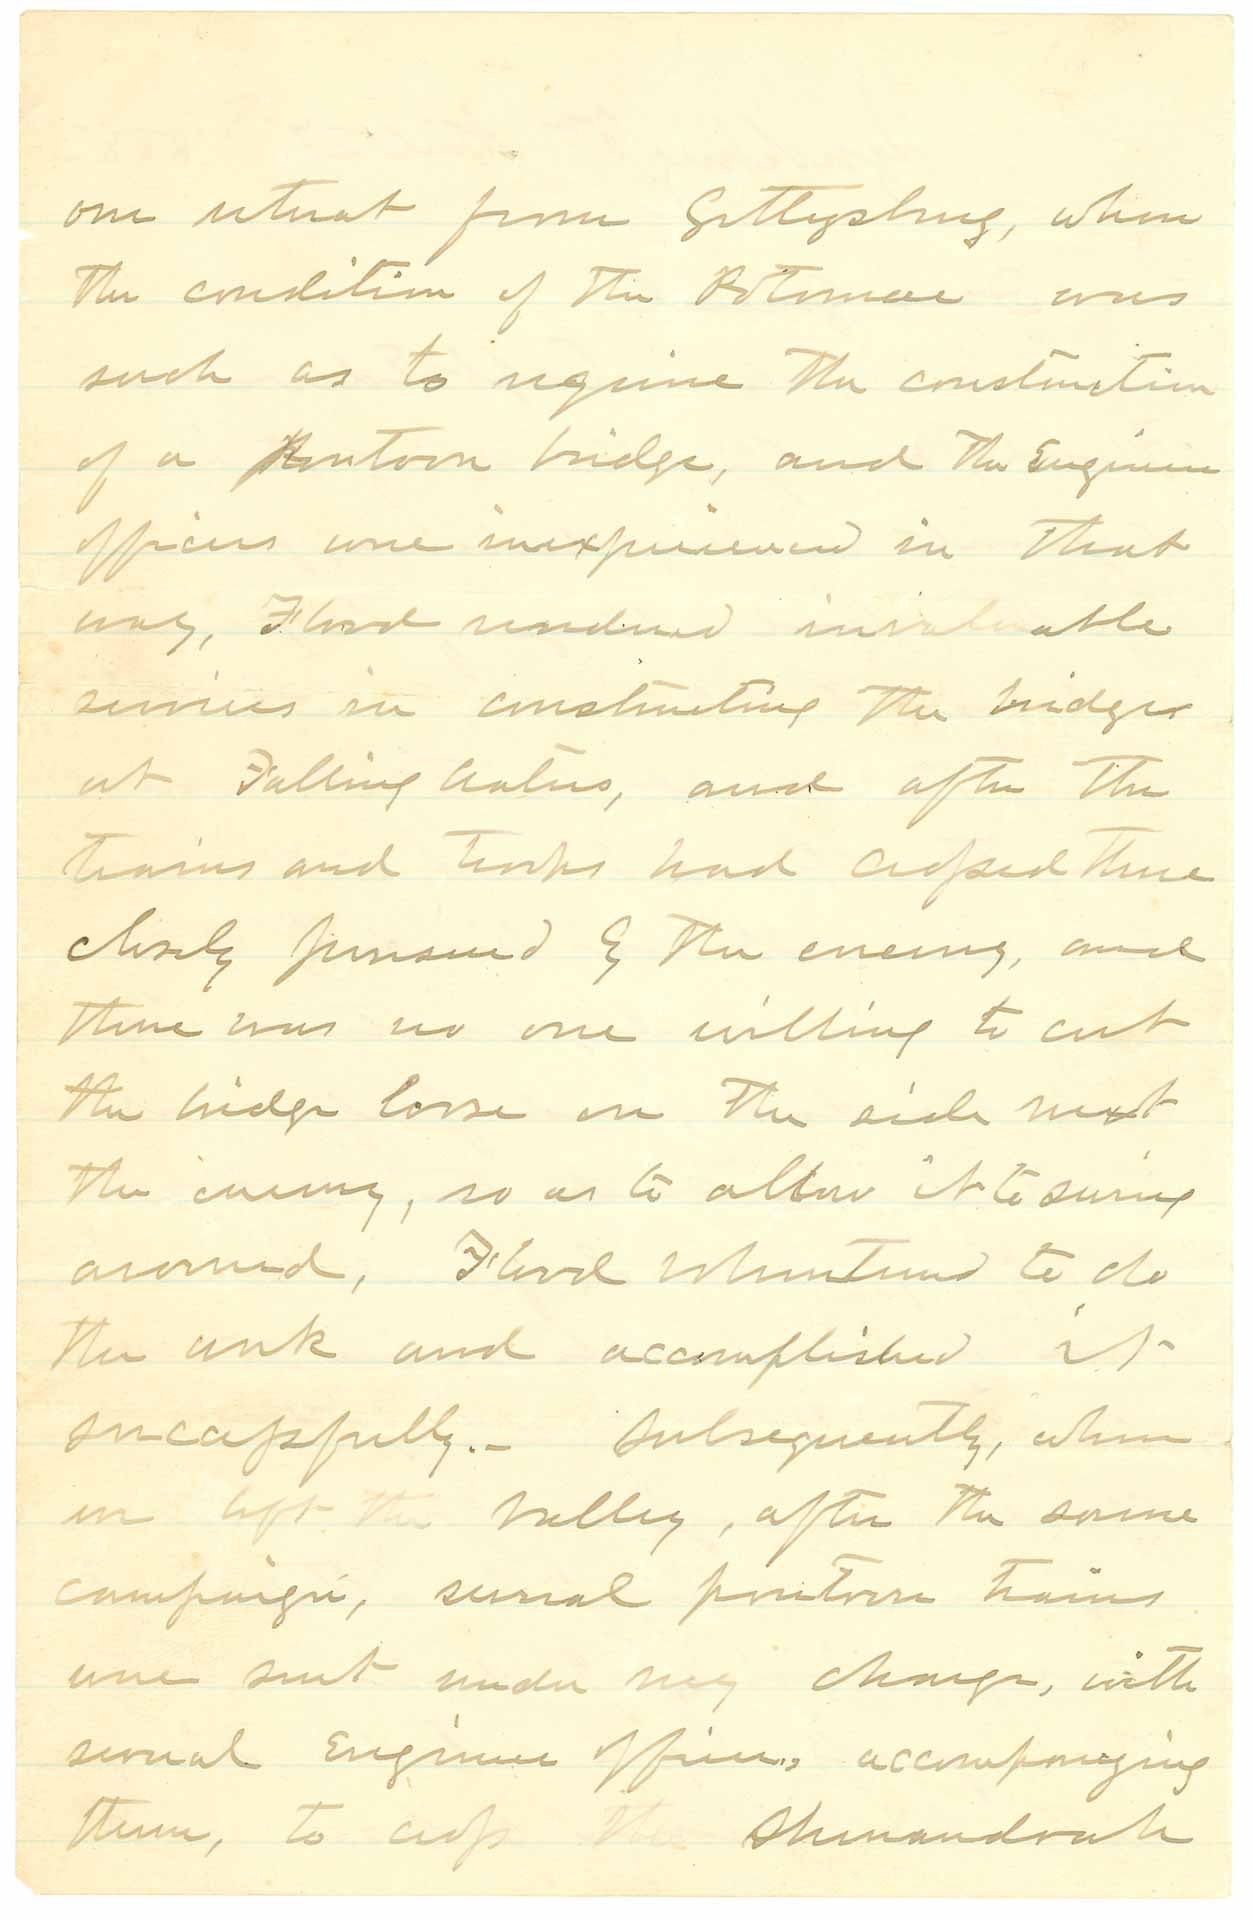 our retreat from Gettysburg, when
the condition of the Potomac was
such as to require the construction
of a Pontoon bridge, and the Engineer
officers were inexperienced in that
way, Flood rendered invaluable
services in constructing the bridges
at Falling Waters, and after the
trains and troops had crossed there
closely pursued by the enemy, and
there was no one willing to cut
the bridge loose on the side next
the enemy, so as to allow it to swing
around, Flood volunteered to do
the work and accomplished it
successfully.- Subsequently, when
we left the Valley, after the same
campaign, several pontoon trains
were sent under my charge, with
several Engineer officers accompanying
them, to cross the Shenandoah